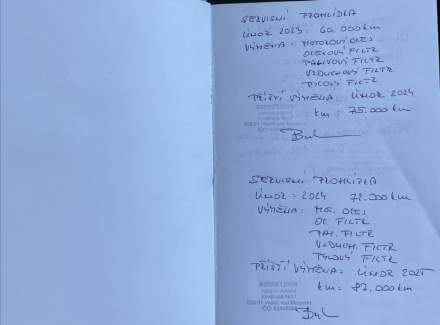 SERVISNÍ PROHLÍDKA
ÚNOR 2023 60.000km
VÝMĚNA: MOTOROVÝ OLEJ
OLEJOVÝ FILTR
PALIVOVÝ FILTR
VZDUCHOVÝ FILTR
PYLOVÝ FILTR
PŘÍŠTÍ VÝMĚNA: ÚNOR 2024
km: 75.000 km
SERVISNÍ PROHLÍDKA
ÚNOR: 2024 72.000km
VÝMĚNA: MO. OLEJ
OL. FILTR
PAL. FILTR
VZDUCH. FILTR
PYLOVÝ FILTR
PŘÍŠTÍ VÝMĚNA: ÚNOR 2025
km: 87.000km